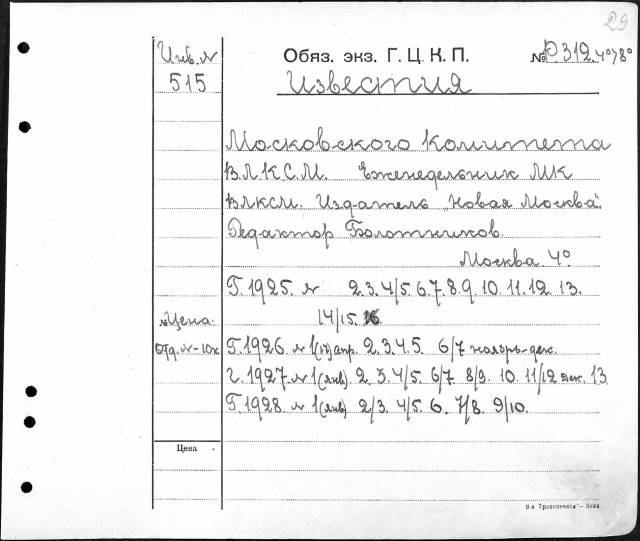 29
Инв. №
515
Обяз. экз. Г. Ц. К. П.
№ Р312. 4°/8°
Известия
Московского Комитета
В.Л.К.С.М. Еженедельник МК
ВЛКСМ. Издатель „Новая Москва".
Редактор Болотников.
Москва 4°
Г. 1925. № 2. 3. 4/5. 6. 7. 8. 9. 10. 11. 12. 13.
14/15. 16.
Цена:
отд. №-10к.
Г. 1926 № 1(17) апр. 2. 3. 4. 5. 6/7 ноябрь-дек.
Г. 1927. № 1(янв) 2. 3. 4/5. 6/7. 8/9. 10. 11/12 дек. 13.
Г. 1928 № 1(янв) 2/3. 4/5. 6. 7/8. 9/10.
Цена
8-я Транспечати"—3884